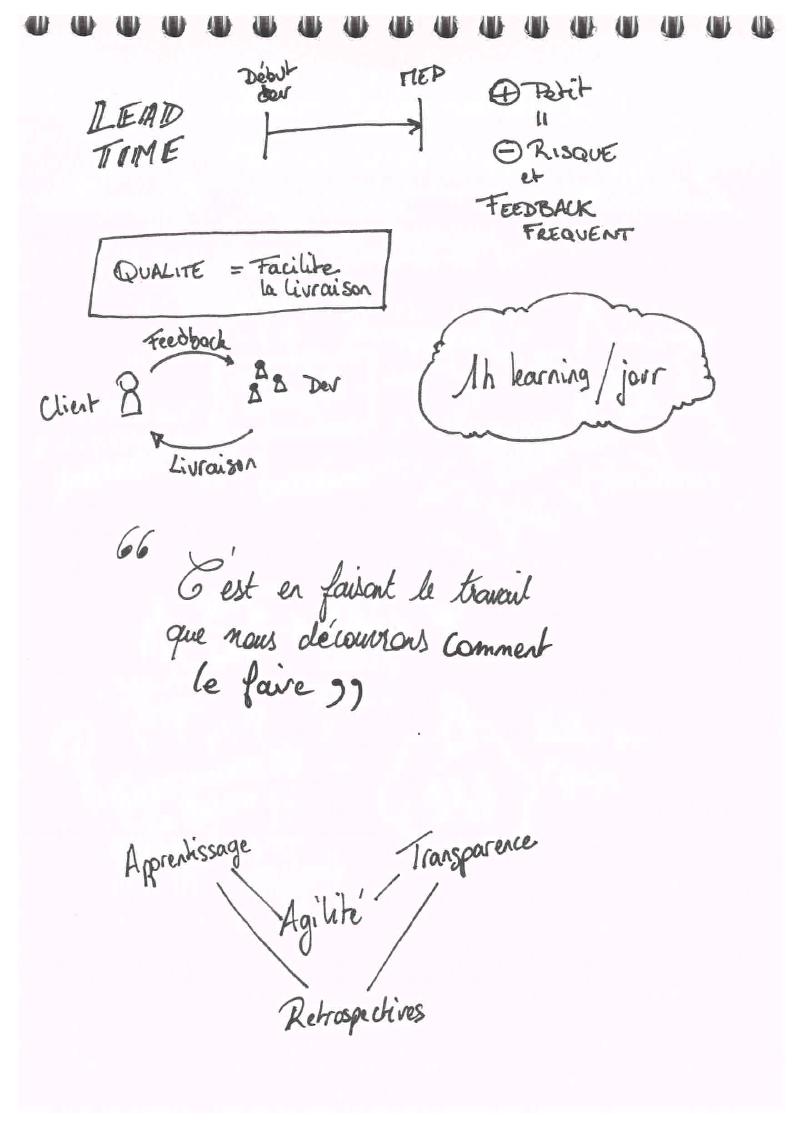 LEAD
TIME
Début
dev
MEP
⊕ Petit
=
⊖ RISQUE
et
FEEDBACK
FREQUENT
QUALITE = Facilite
la Livraison
Feedback
Client
Dev
Livraison
1h learning / jour
“ C'est en faisant le travail
que nous découvrons comment
le faire ”
Apprentissage
Transparence
Agilité
Retrospectives